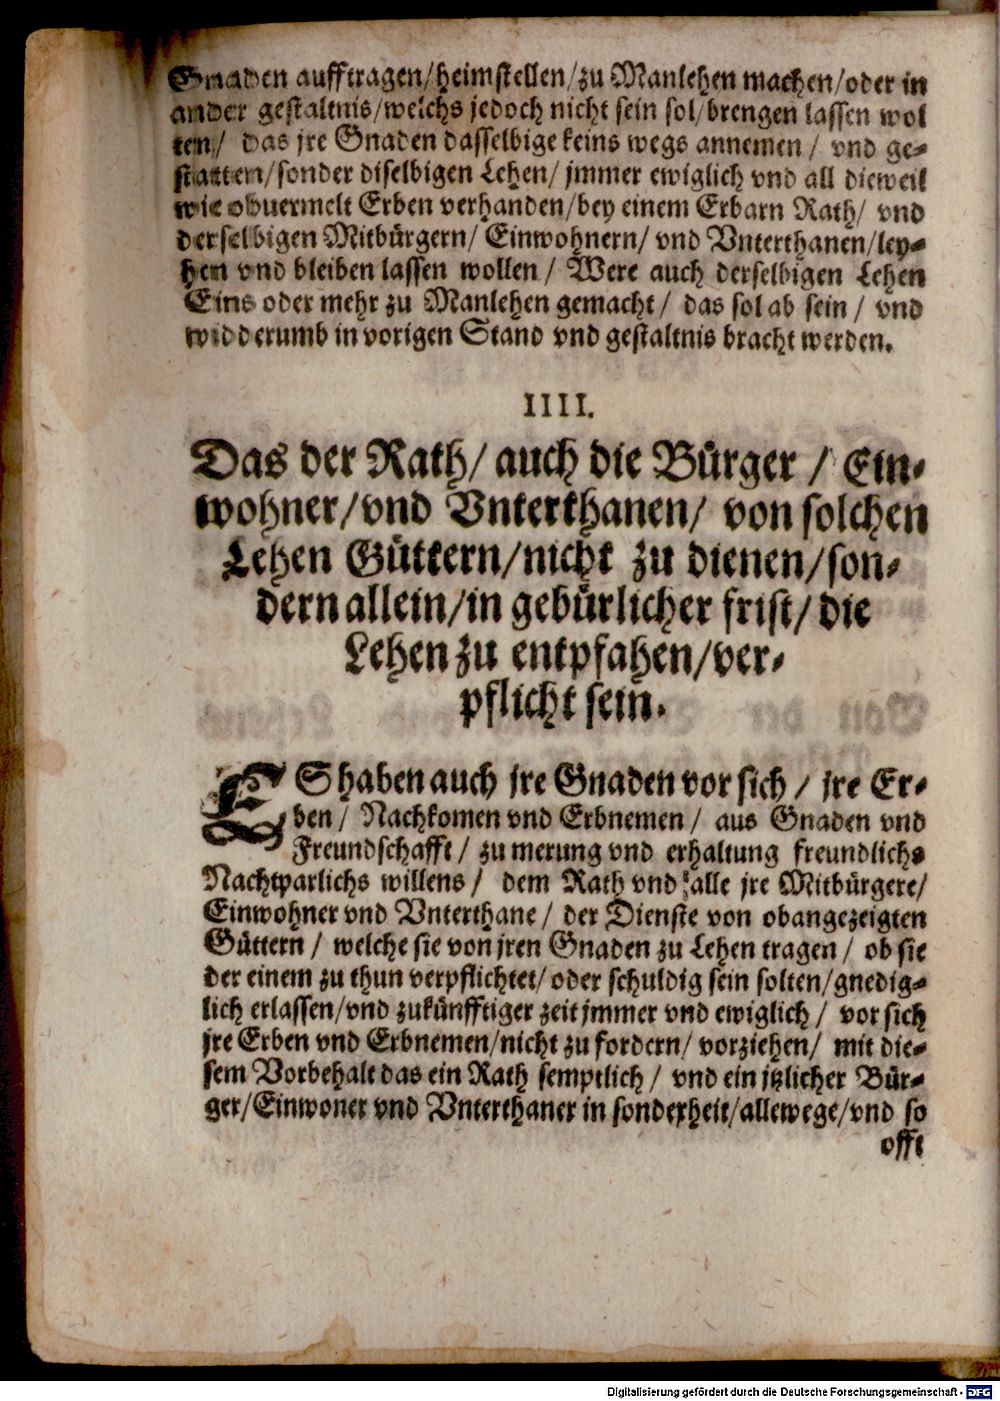 Gnaden aufftragen/heimstellen/zu Manlehen machen/oder in
ander gestaltnis/welchs jedoch nicht sein sol/brengen lassen wol
ten/ das jre Gnaden dasselbige keins wegs annemen/ vnd ge-
statten/sonder diselbigen Lehen/ jmmer ewiglich vnd all dieweil
wie obuermelt Erben verhanden/bey einem Erbarn Rath/ vnd
derselbigen Mitbürgern/ Einwohnern/ vnd Vnterthanen/ley-
hen vnd bleiben lassen wollen/ Were auch derselbigen Lehen
Eins oder mehr zu Manlehen gemacht/ das sol ab sein/ vnd
widderumb in vorigen Stand vnd gestaltnis bracht werden.
IIII.
Das der Rath/ auch die Bürger/ Ein-
wohner/vnd Vnterthanen/ von solchen
Lehen Güttern/nicht zu dienen/son-
dern allein/in gebürlicher frist/die
Lehen zu entpfahen/ver-
pflicht sein.
ES haben auch jre Gnaden vor sich/ jre Er-
ben/ Nachkomen vnd Erbnemen/ aus Gnaden vnd
Freundschafft/ zu merung vnd erhaltung freundlichs
Nachtparlichs willens/ dem Rath vnd alle jre Mitbürgere/
Einwohner vnd Vnterthane/ der Dienste von obangezeigten
Güttern/ welche sie von jren Gnaden zu Lehen tragen/ ob sie
der einem zu thun verpflichtet/oder schuldig sein solten/gnedig-
lich erlassen/vnd zukünfftiger zeit jmmer vnd ewiglich/ vor sich
jre Erben vnd Erbnemen/nicht zu fordern/ vorziehen/ mit die-
sem Vorbehalt das ein Rath semptlich/ vnd ein jtzlicher Bür-
ger/Einwoner vnd Vnterthaner in sonderheit/allewege/vnd so
offt
Digitalisierung gefördert durch die Deutsche Forschungsgemeinschaft - DFG